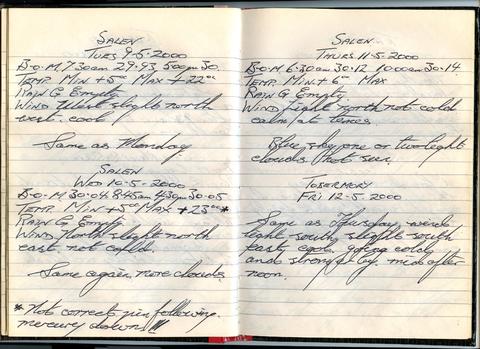 SALEN
TUES 9-5-2000
B-O-M, 7.30am 29.93 5.00pm 30.
TEMP MIN +5°° MAX +22°°
RAIN G Empty
WIND West slight north
west. cool
Same as Monday
SALEN
WED 10-5-2000
B-O-M 30.04 8.45am 4.30pm 30.05
TEMP. MIN +5° MAX +23°°*
RAIN G Empty
WIND North slight north
east not cold.
Same again, more clouds
* Not correct pin following
mercury down !!!
SALEN
THURS 11-5-2000
B-O-M 6.30am 30.12 10.00am 30.14
TEMP MIN +6° MAX
RAIN G Empty
WIND Light north not cold
calm at times
Blue sky one or two light
clouds Hot sun.
TOBERMORY
FRI 12-5-2000
Same as Thursday wind
light south slightly south
east cool going cold
and strong by mid after
noon.